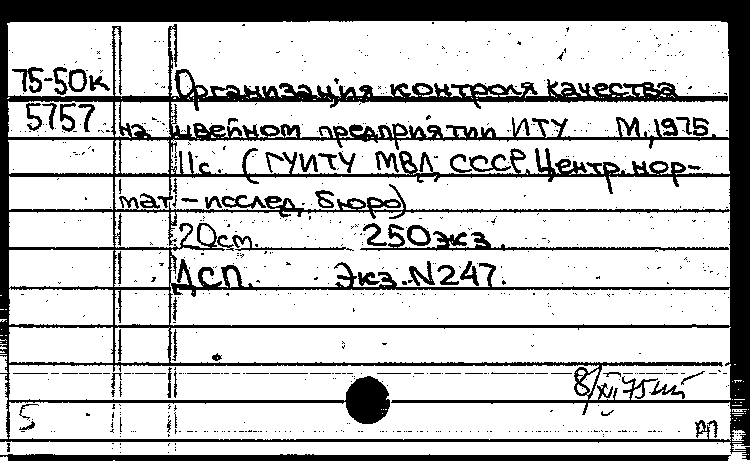 75-50к Организация контроля качества
5757 на швейном предприятии ИТУ М, 1975.
11с. (ГУИТУ МВД СССР. Центр. нор-
мат-исслед. бюро)
20см. 250экз.
ДСП. Экз. N247.
8/XII 75
5
РП